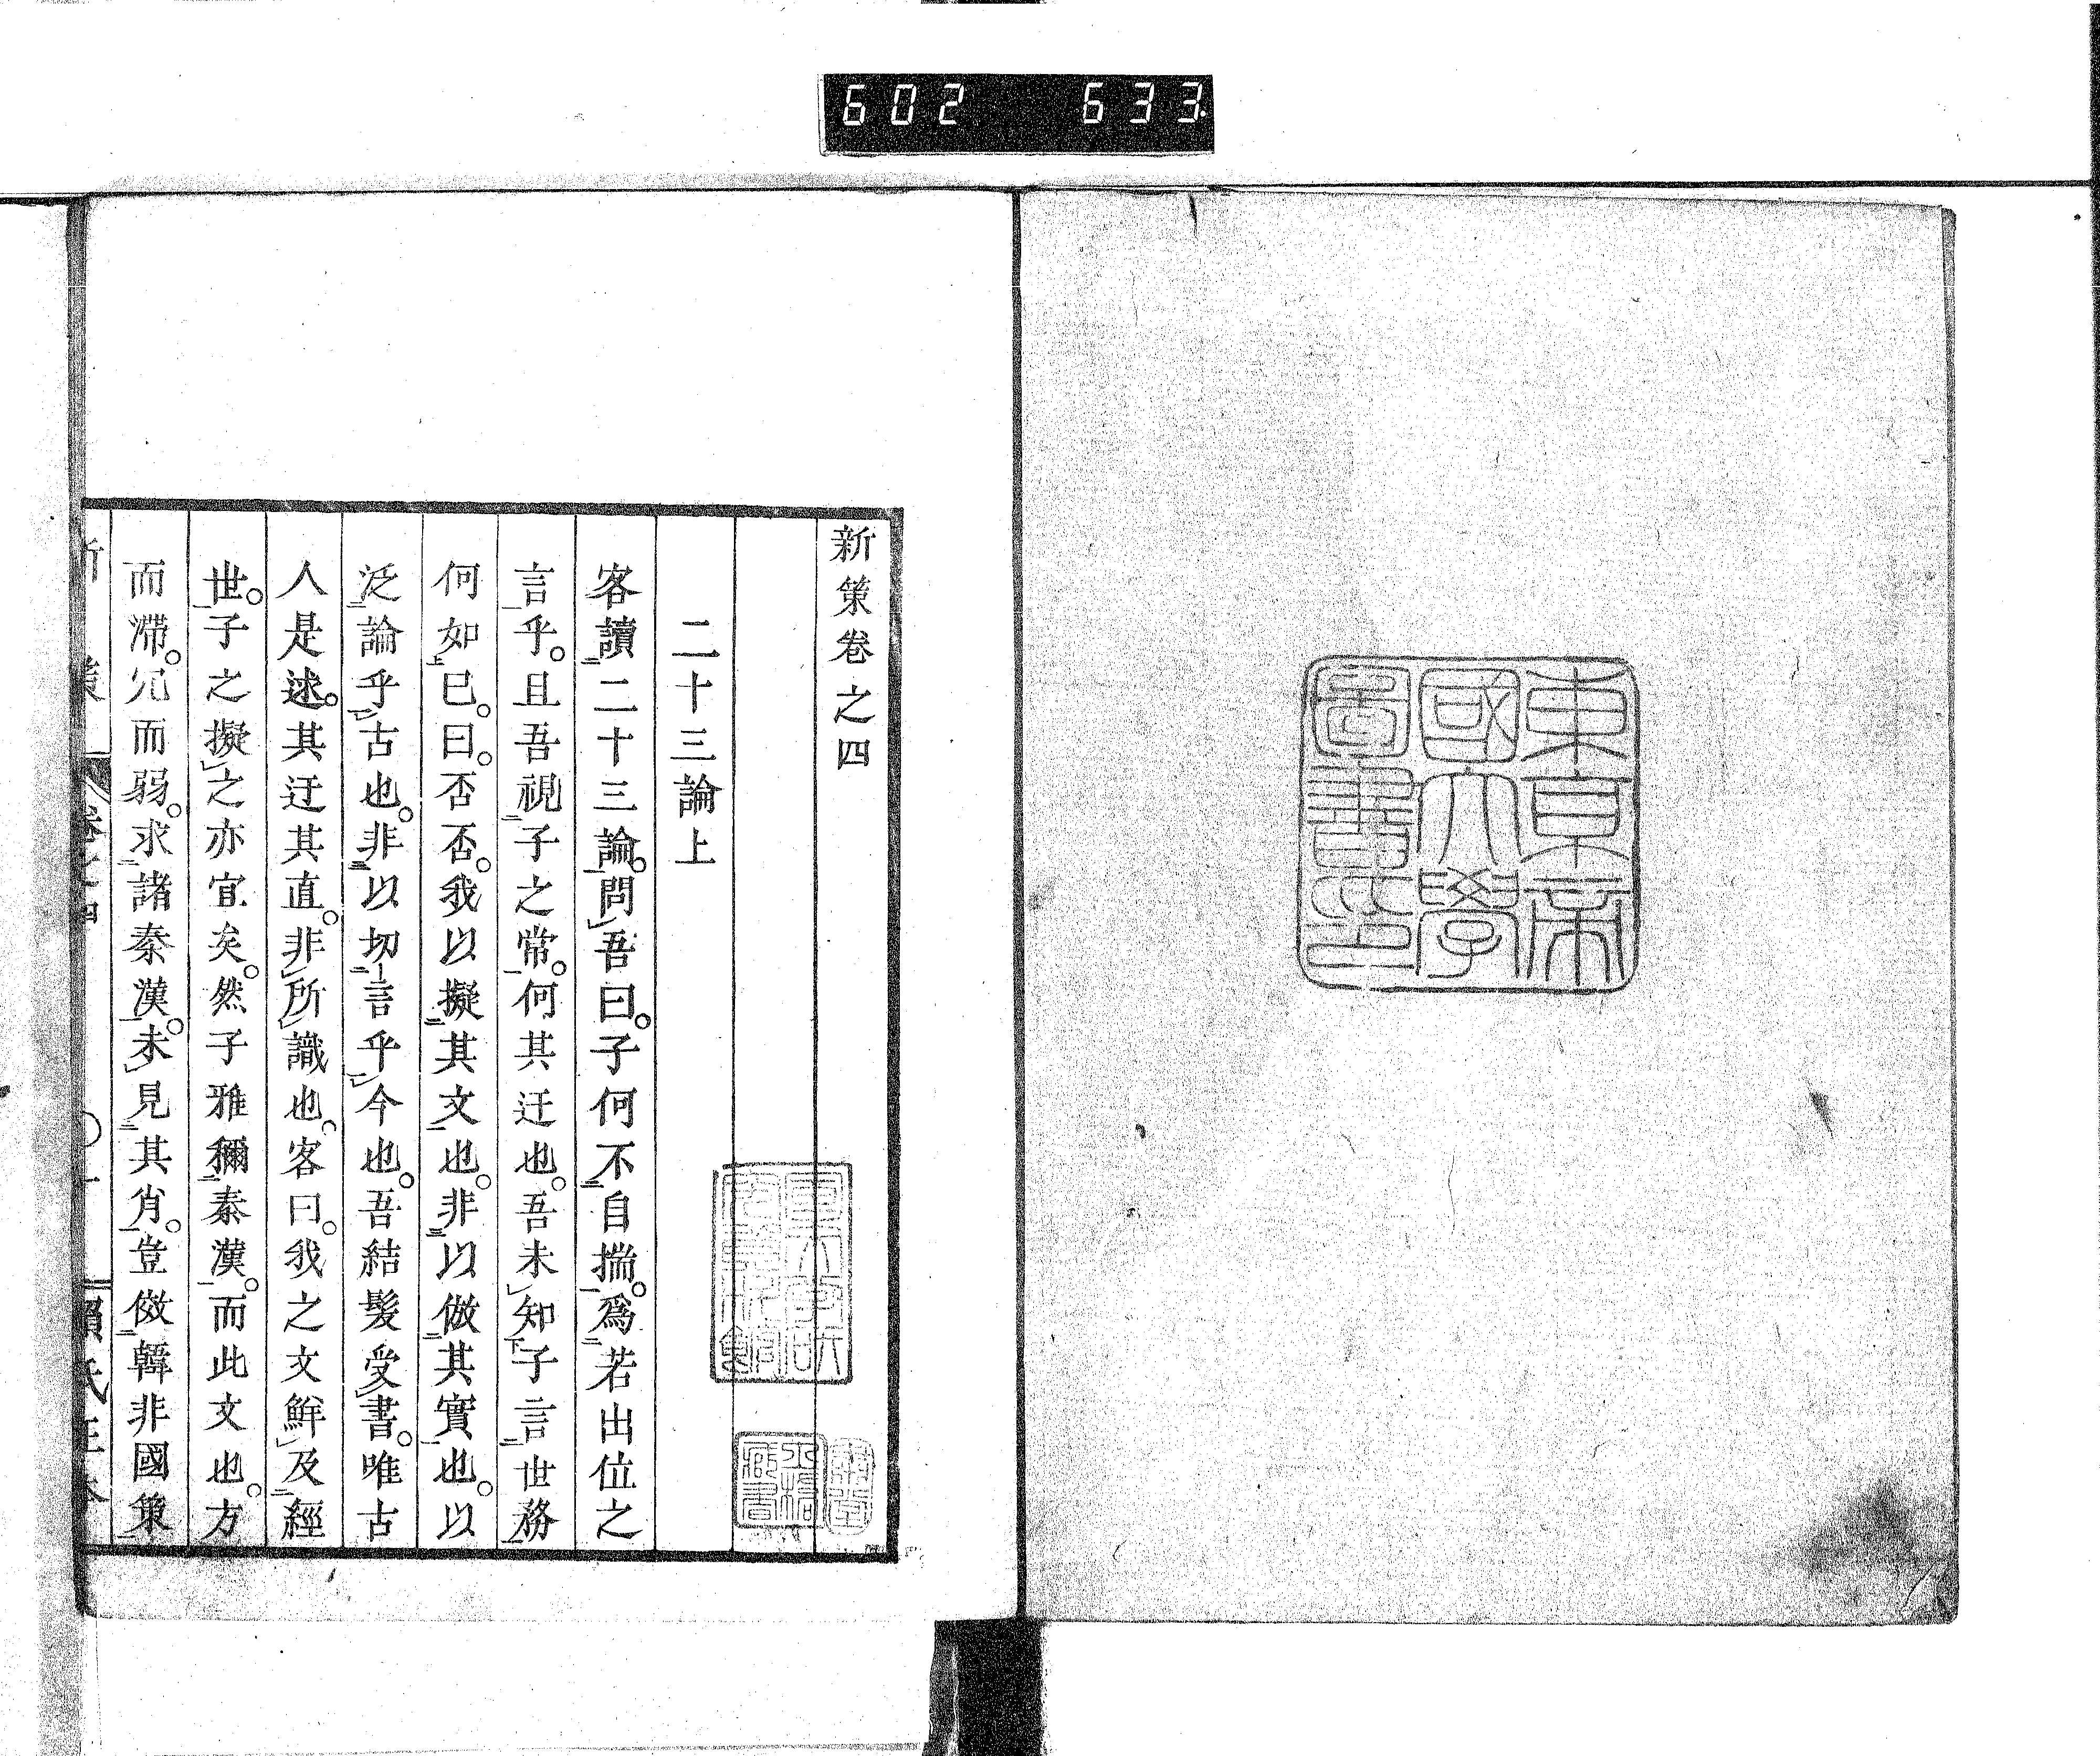 602 633
東京帝
國大學
圖書之印
新策卷之四
二十三論上
客讀二十三論。問吾曰。子何不自揣。爲若出位之
言乎。且吾視子之常。何其迂也。吾未知子言世務
何如已。曰。否否。我以擬其文也。非以倣其實也。以
泛論乎古也。非以切言乎今也。吾結髮受書。唯古
人是逑。其迂其直。非所識也。客曰。我之文鮮及經
世。子之擬之亦宜矣。然子雅稱秦漢。而此文也。方
而滯。冗而弱。求諸秦漢。未見其肖。豈傚韓非國策